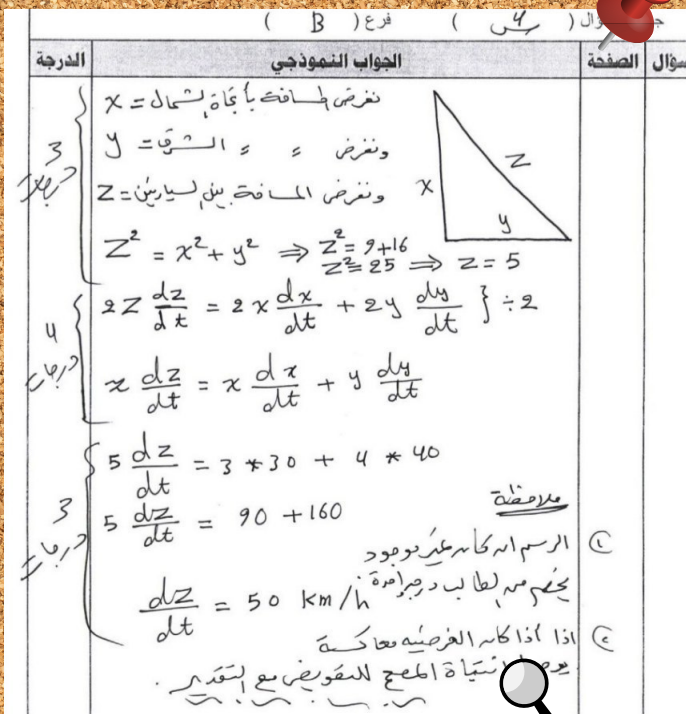 فرع ( B )
الدرجة
الجواب النموذجي
الصفحة
نفرض المسافة بأتجاة الشمال = x
ونفرض = = الشرق = y
ونفرض المسافة بين السيارتين = z
x
z
y
z² = x² + y² ⇒ z² = 9+16
z² = 25 ⇒ z = 5
3 درجات
2z dz/dt = 2x dx/dt + 2y dy/dt } ÷2
z dz/dt = x dx/dt + y dy/dt
4 درجات
5 dz/dt = 3 * 30 + 4 * 40
5 dz/dt = 90 + 160
dz/dt = 50 km/h
3 درجات
ملاحظة
① الرسم ان كان غير موجود
يخصم من الطالب درجة واحدة
② اذا أذا كان الفرضية معاكسة
أنتباة المصحح للتعويض مع التقدير .